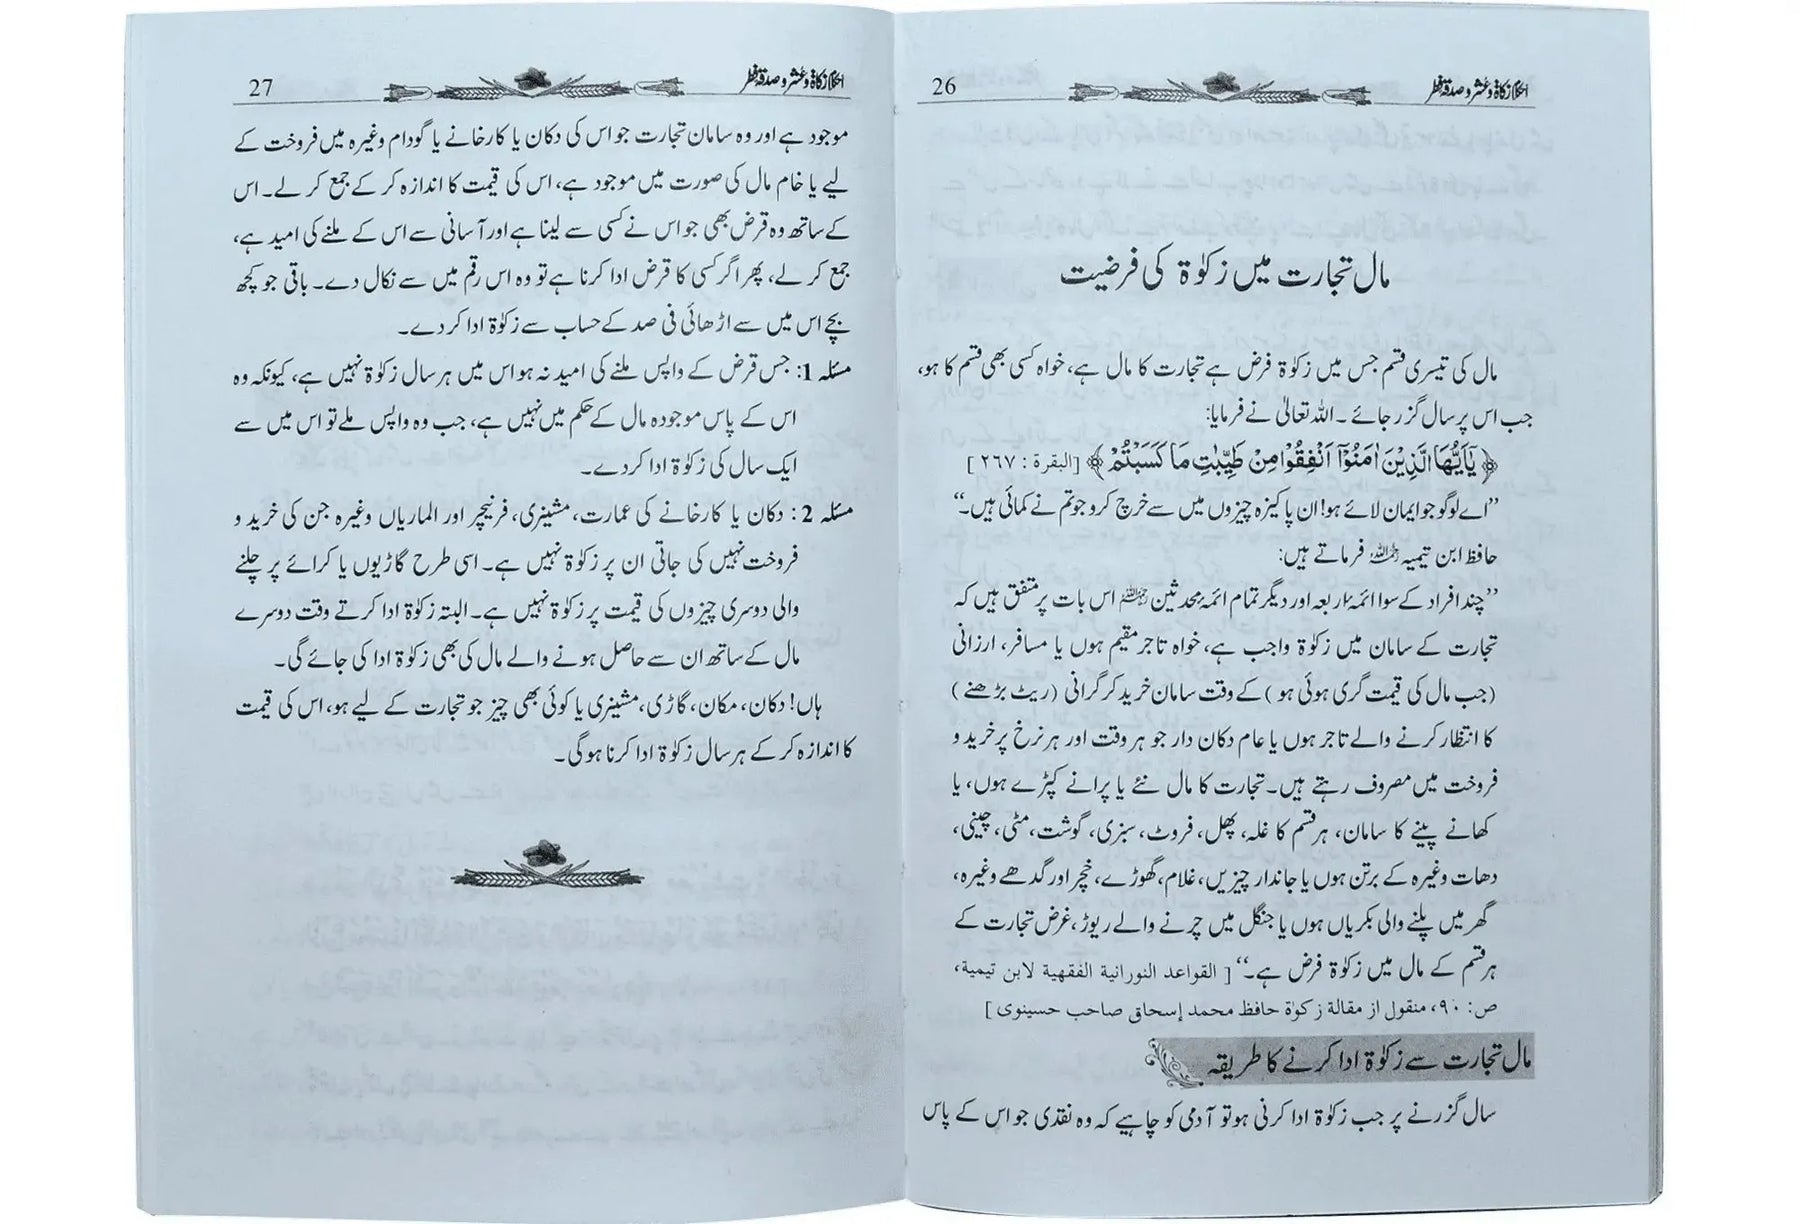 احکام زکاۃ و عشر و صدقۃ فطر
26
مال تجارت میں زکوٰۃ کی فرضیت
مال کی تیسری قسم جس میں زکوٰۃ فرض ہے تجارت کا مال ہے، خواہ کسی بھی قسم کا ہو،
جب اس پر سال گزر جائے۔ اللہ تعالیٰ نے فرمایا:
﴿يٰٓاَيُّهَا الَّذِيْنَ اٰمَنُوْٓا اَنْفِقُوْا مِنْ طَيِّبٰتِ مَا كَسَبْتُمْ﴾ [البقرة : ٢٦٧]
”اے لوگو جو ایمان لائے ہو! ان پاکیزہ چیزوں میں سے خرچ کرو جو تم نے کمائی ہیں۔“
حافظ ابن تیمیہ رحمہ اللہ فرماتے ہیں:
”چند افراد کے سوا ائمہ اربعہ اور دیگر تمام ائمہ محدثین رحمہم اللہ اس بات پر متفق ہیں کہ
تجارت کے سامان میں زکوٰۃ واجب ہے، خواہ تاجر مقیم ہوں یا مسافر، ارزانی
(جب مال کی قیمت گری ہوئی ہو) کے وقت سامان خرید کر گرانی (ریٹ بڑھنے)
کا انتظار کرنے والے تاجر ہوں یا عام دکان دار جو ہر وقت اور ہر نرخ پر خرید و
فروخت میں مصروف رہتے ہیں۔ تجارت کا مال نئے یا پرانے کپڑے ہوں، یا
کھانے پینے کا سامان، ہر قسم کا غلہ، پھل، فروٹ، سبزی، گوشت، مٹی، چینی،
دھات وغیرہ کے برتن ہوں یا جاندار چیزیں، غلام، گھوڑے، خچر اور گدھے وغیرہ،
گھر میں پلنے والی بکریاں ہوں یا جنگل میں چرنے والے ریوڑ، غرض تجارت کے
ہر قسم کے مال میں زکوٰۃ فرض ہے۔“ [ القواعد النورانية الفقهية لابن تيمية،
ص: ٩٠، منقول از مقالۃ زکوٰۃ حافظ محمد إسحاق صاحب حسینوی ]
مال تجارت سے زکوٰۃ ادا کرنے کا طریقہ
سال گزرنے پر جب زکوٰۃ ادا کرنی ہو تو آدمی کو چاہیے کہ وہ نقدی جو اس کے پاس
احکام زکاۃ و عشر و صدقۃ فطر
27
موجود ہے اور وہ سامان تجارت جو اس کی دکان یا کارخانے یا گودام وغیرہ میں فروخت کے
لیے یا خام مال کی صورت میں موجود ہے، اس کی قیمت کا اندازہ کر کے جمع کر لے۔ اس
کے ساتھ وہ قرض بھی جو اس نے کسی سے لینا ہے اور آسانی سے اس کے ملنے کی امید ہے،
جمع کر لے، پھر اگر کسی کا قرض ادا کرنا ہے تو وہ اس رقم میں سے نکال دے۔ باقی جو کچھ
بچے اس میں سے اڑھائی فی صد کے حساب سے زکوٰۃ ادا کر دے۔
مسئلہ 1: جس قرض کے واپس ملنے کی امید نہ ہو اس میں ہر سال زکوٰۃ نہیں ہے، کیونکہ وہ
اس کے پاس موجودہ مال کے حکم میں نہیں ہے، جب وہ واپس ملے تو اس میں سے
ایک سال کی زکوٰۃ ادا کر دے۔
مسئلہ 2: دکان یا کارخانے کی عمارت، مشینری، فرنیچر اور الماریاں وغیرہ جن کی خرید و
فروخت نہیں کی جاتی ان پر زکوٰۃ نہیں ہے۔ اسی طرح گاڑیوں یا کرائے پر چلنے
والی دوسری چیزوں کی قیمت پر زکوٰۃ نہیں ہے۔ البتہ زکوٰۃ ادا کرتے وقت دوسرے
مال کے ساتھ ان سے حاصل ہونے والے مال کی بھی زکوٰۃ ادا کی جائے گی۔
ہاں! دکان، مکان، گاڑی، مشینری یا کوئی بھی چیز جو تجارت کے لیے ہو، اس کی قیمت
کا اندازہ کر کے ہر سال زکوٰۃ ادا کرنا ہو گی۔